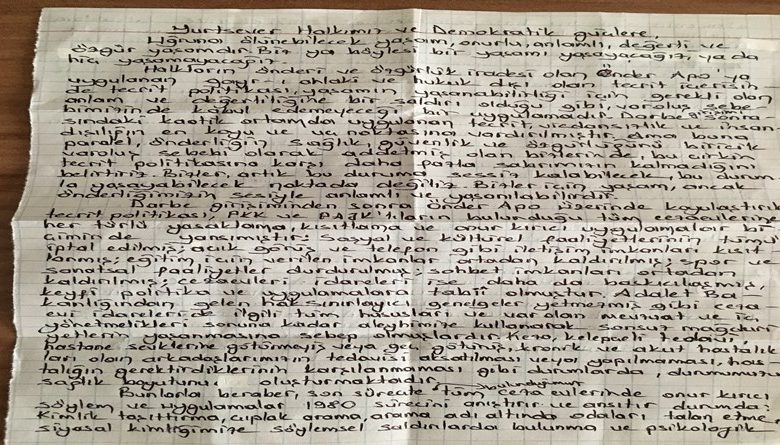 Yurtsever Halkımız ve Demokratik güçlere,
Uğruna ölünebilecek yaşam, onurlu, anlamlı, değerli ve
özgür yaşamdır. Biz ya böylesi bir yaşamı yaşayacağız, ya da
hiç yaşamayacağız.
Halkların önderi ve özgürlük iradesi olan Önder Apo'ya
uygulanan gayri ahlaki ve hukuk dışı olan tecrit içerisin
de tecrit politikası, yaşamın yaşanabilirliği için gerekli olan
anlam ve değerliliğine bir saldırı olduğu gibi, varoluş sebe
bimizin de kabul edemeyeceği bir uygulamadır. Darbe girişimi sonra
sındaki kaotik ortamda uygulanan tecrit, vicdansızlık ve insan
dışılığın en koyu ve uç noktasına vardırılmıştır. Ama buna
paralel, önderliğin sağlık, güvenlik ve özgürlüğünü biricik
varoluş sebebi olarak addetmiş olan bizlerin de, bu çirkin
tecrit politikasına karşı daha fazla sabrımızın kalmadığını
belirtiriz. Bizler, artık bu duruma sessiz kalabilecek, bu durum
la yaşayabilecek noktada değiliz. Bizler için yaşam, ancak
önderliğimizin sesiyle anlamlı ve yaşanılabilirdir.
Darbe girişiminden sonra Önder Apo üzerinde koyulaştırılan
tecrit politikası, PKK ve PAJK'lıların bulunduğu tüm cezaevlerine
her türlü yasaklama, kısıtlama ve onur kırıcı uygulamalar bi
çiminde yansımıştır. Sosyal ve kültürel faaliyetlerinin tümü
iptal edilmiş; açık görüş ve telefon gibi iletişim imkanları kısıt
lanmış; eğitim için verilen imkanlar ortadan kaldırılmış; spor ve
sanatsal faaliyetler durdurulmuş; sohbet imkanları ortadan
kaldırılmış; cezaevleri idareleri ise daha da baskıcılaşmış,
keyfi politika ve uygulamalara tabii olmuştur. Adalet Ba
kanlığından gelen hak sınırlayıcı genelgeler yetmezmiş gibi ceza
evi idareleri de ilgili tüm hususları ve var olan mevzuat ve iç
yönetmelikleri sonuna kadar aleyhimize kullanarak, sonsuz mağduri
yetlerin yaşanmasına sebep olmuşlardır. Keza, kelepçeli tedavi,
hastane sevklerine götürmeyiş veya geç götürüş, kronik ve akut hastalık
ları olan arkadaşlarımızın tedavisi aksatılması veya yapılmaması, has
talığın gerektirdiklerinin karşılanmaması gibi durumlarda, durumumuzun
sağlık boyutunu oluşturmaktadır.
bulunduğumuz
Bunlarla beraber, son süreçte tüm ceza evlerinde onur kırıcı
söylem ve uygulamalar 1980 sürecini anıştırır ve ansıtır durumda.
Kimlik taşıttırma, çıplak arama, arama adı altında odaları talan etme
siyasal kimliğimize söylemsel saldırılarda bulunma ve psikolojik